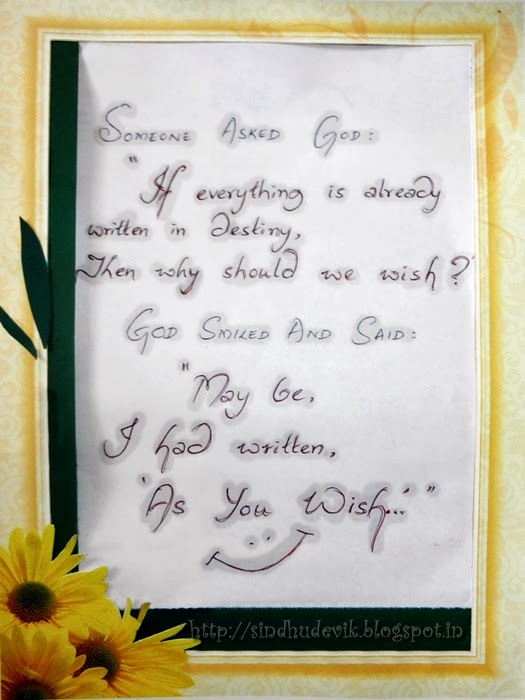 Someone Asked God:
"If everything is already
written in destiny,
Then why should we wish?
God Smiled And Said:
"May be,
I had written,
'As You Wish...'"
http://sindhudevik.blogspot.in